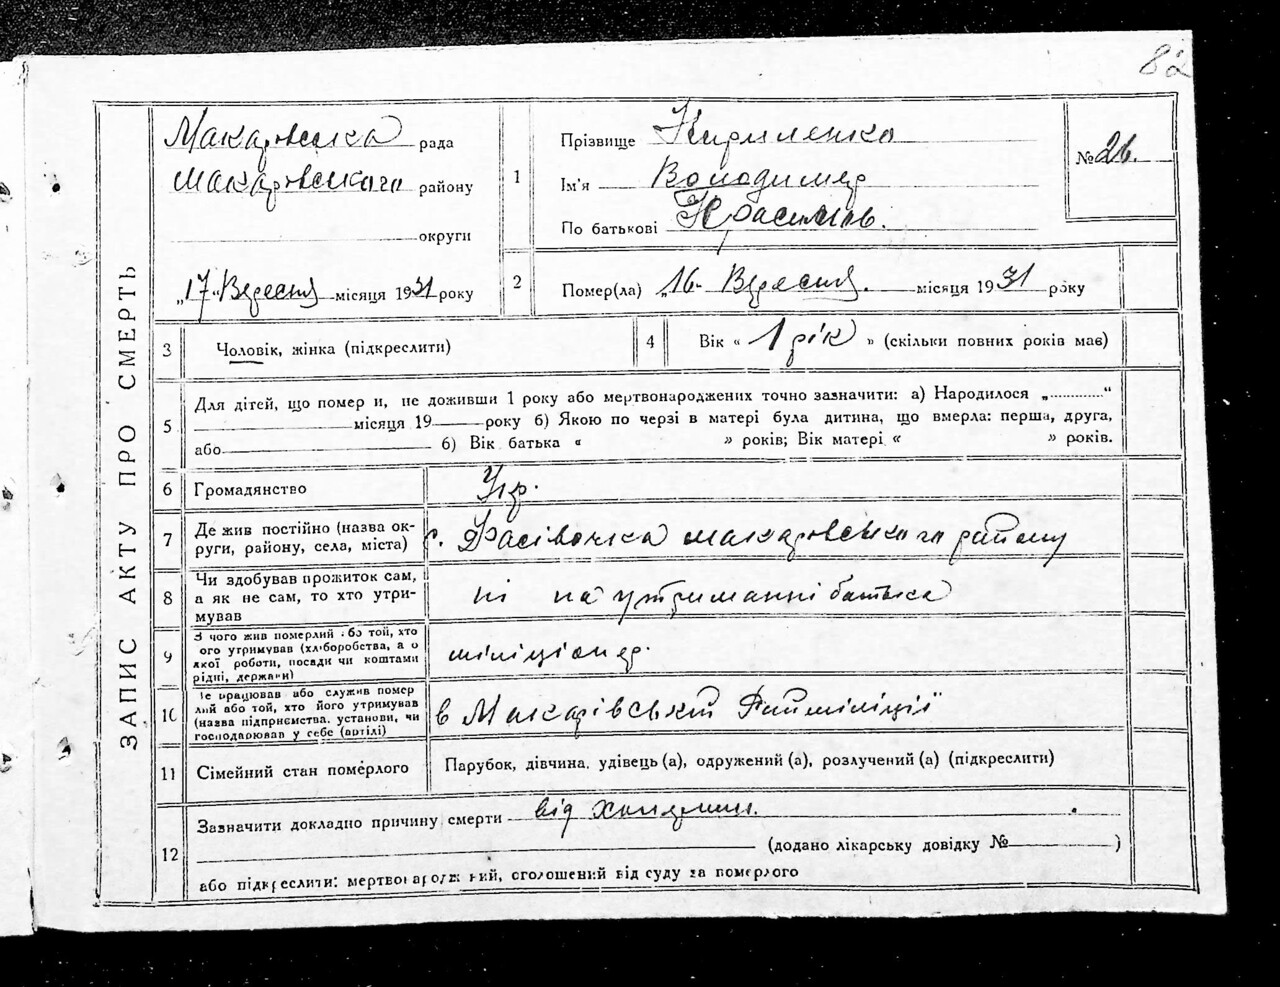 82
ЗАПИС АКТУ ПРО СМЕРТЬ
Макарівська рада
Макаровського району
округи
„17" Вересня місяця 1931 року
1
Прізвище Кириленко
Ім'я Володимер
По батькові
№ 26.
2
Помер(ла) „16" Вересня місяця 1931 року
3
Чоловік, жінка (підкреслити)
4
Вік « 1 рік » (скільки повних років має)
5
Для дітей, що померли, не доживши 1 року або мертвонароджених точно зазначити: а) Народилося „............“
місяця 19 року б) Якою по черзі в матері була дитина, що вмерла: перша, друга,
або б) Вік батька « » років; Вік матері « » років.
6
Громадянство
Укр.
7
Де жив постійно (назва ок-
руги, району, села, міста)
с. Фасівочка макаровського району
8
Чи здобував прожиток сам,
а як не сам, то хто утри-
мував
ні на утриманні батька
9
З чого жив померлий або той, хто
ого утримував (хліборобства, а о
якої роботи, посади чи коштами
рідні, держави)
міліціонер.
10
Де працював або служив помер
лий або той, хто його утримував
(назва підприємства, установи, чи
господарював у себе (артілі)
в Макарівській Райміліції
11
Сімейний стан померлого
Парубок, дівчина, удівець (а), одружений (а), розлучений (а) (підкреслити)
12
Зазначити докладно причину смерти від
(додано лікарську довідку № )
або підкреслити: мертвонароджений, оголошений від суду за померлого